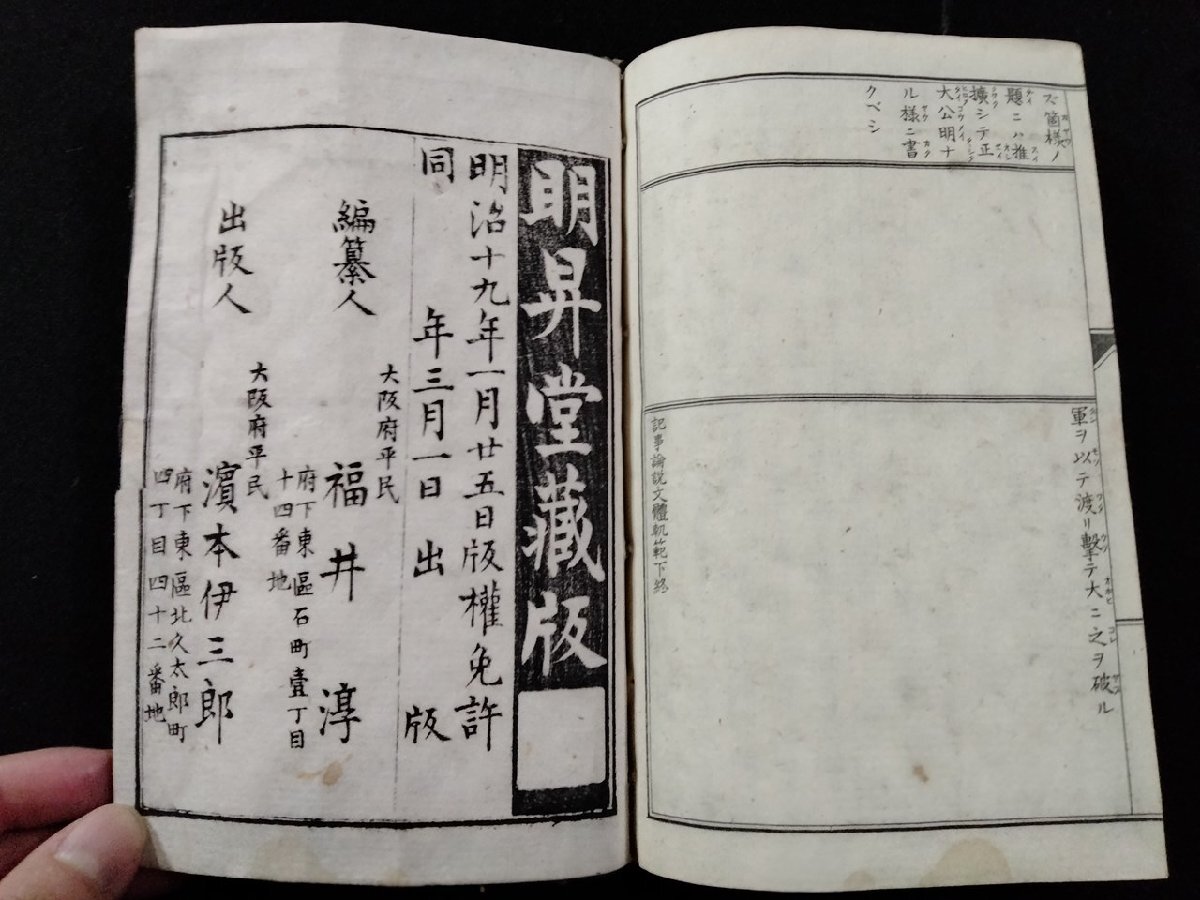 ス箇様ノ
題ニハ推
擴シテ正
大公明ナ
ル様ニ書
クベシ
軍ヲ以テ渡リ擊テ大ニ之ヲ破ル
記事論説文體軌範下終
明昇堂藏版
明治十九年一月廿五日版權免許
同年三月一日出版
編纂人
大阪府平民
福井淳
府下東區石町壹丁目
十四番地
出版人
大阪府平民
濵本伊三郎
府下東區北久太郎町
四丁目四十二番地